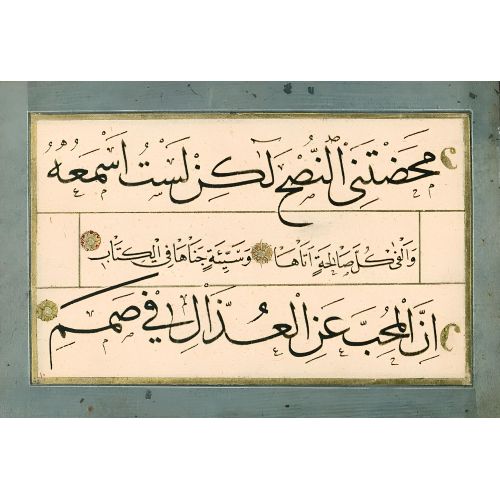 مَحَضْتَنِي النُّصْحَ لٰكِنْ لَسْتُ اَسْمَعُهُ
وَالْفٰى كُلَّ صَالِحَةٍ اَتَاهَا وَسَيِّئَةٍ جَنَاهَا فِي الْكِتَابِ
اِنَّ الْمُحِبَّ عَنِ الْعُذَّالِ فِي صَمَمِ